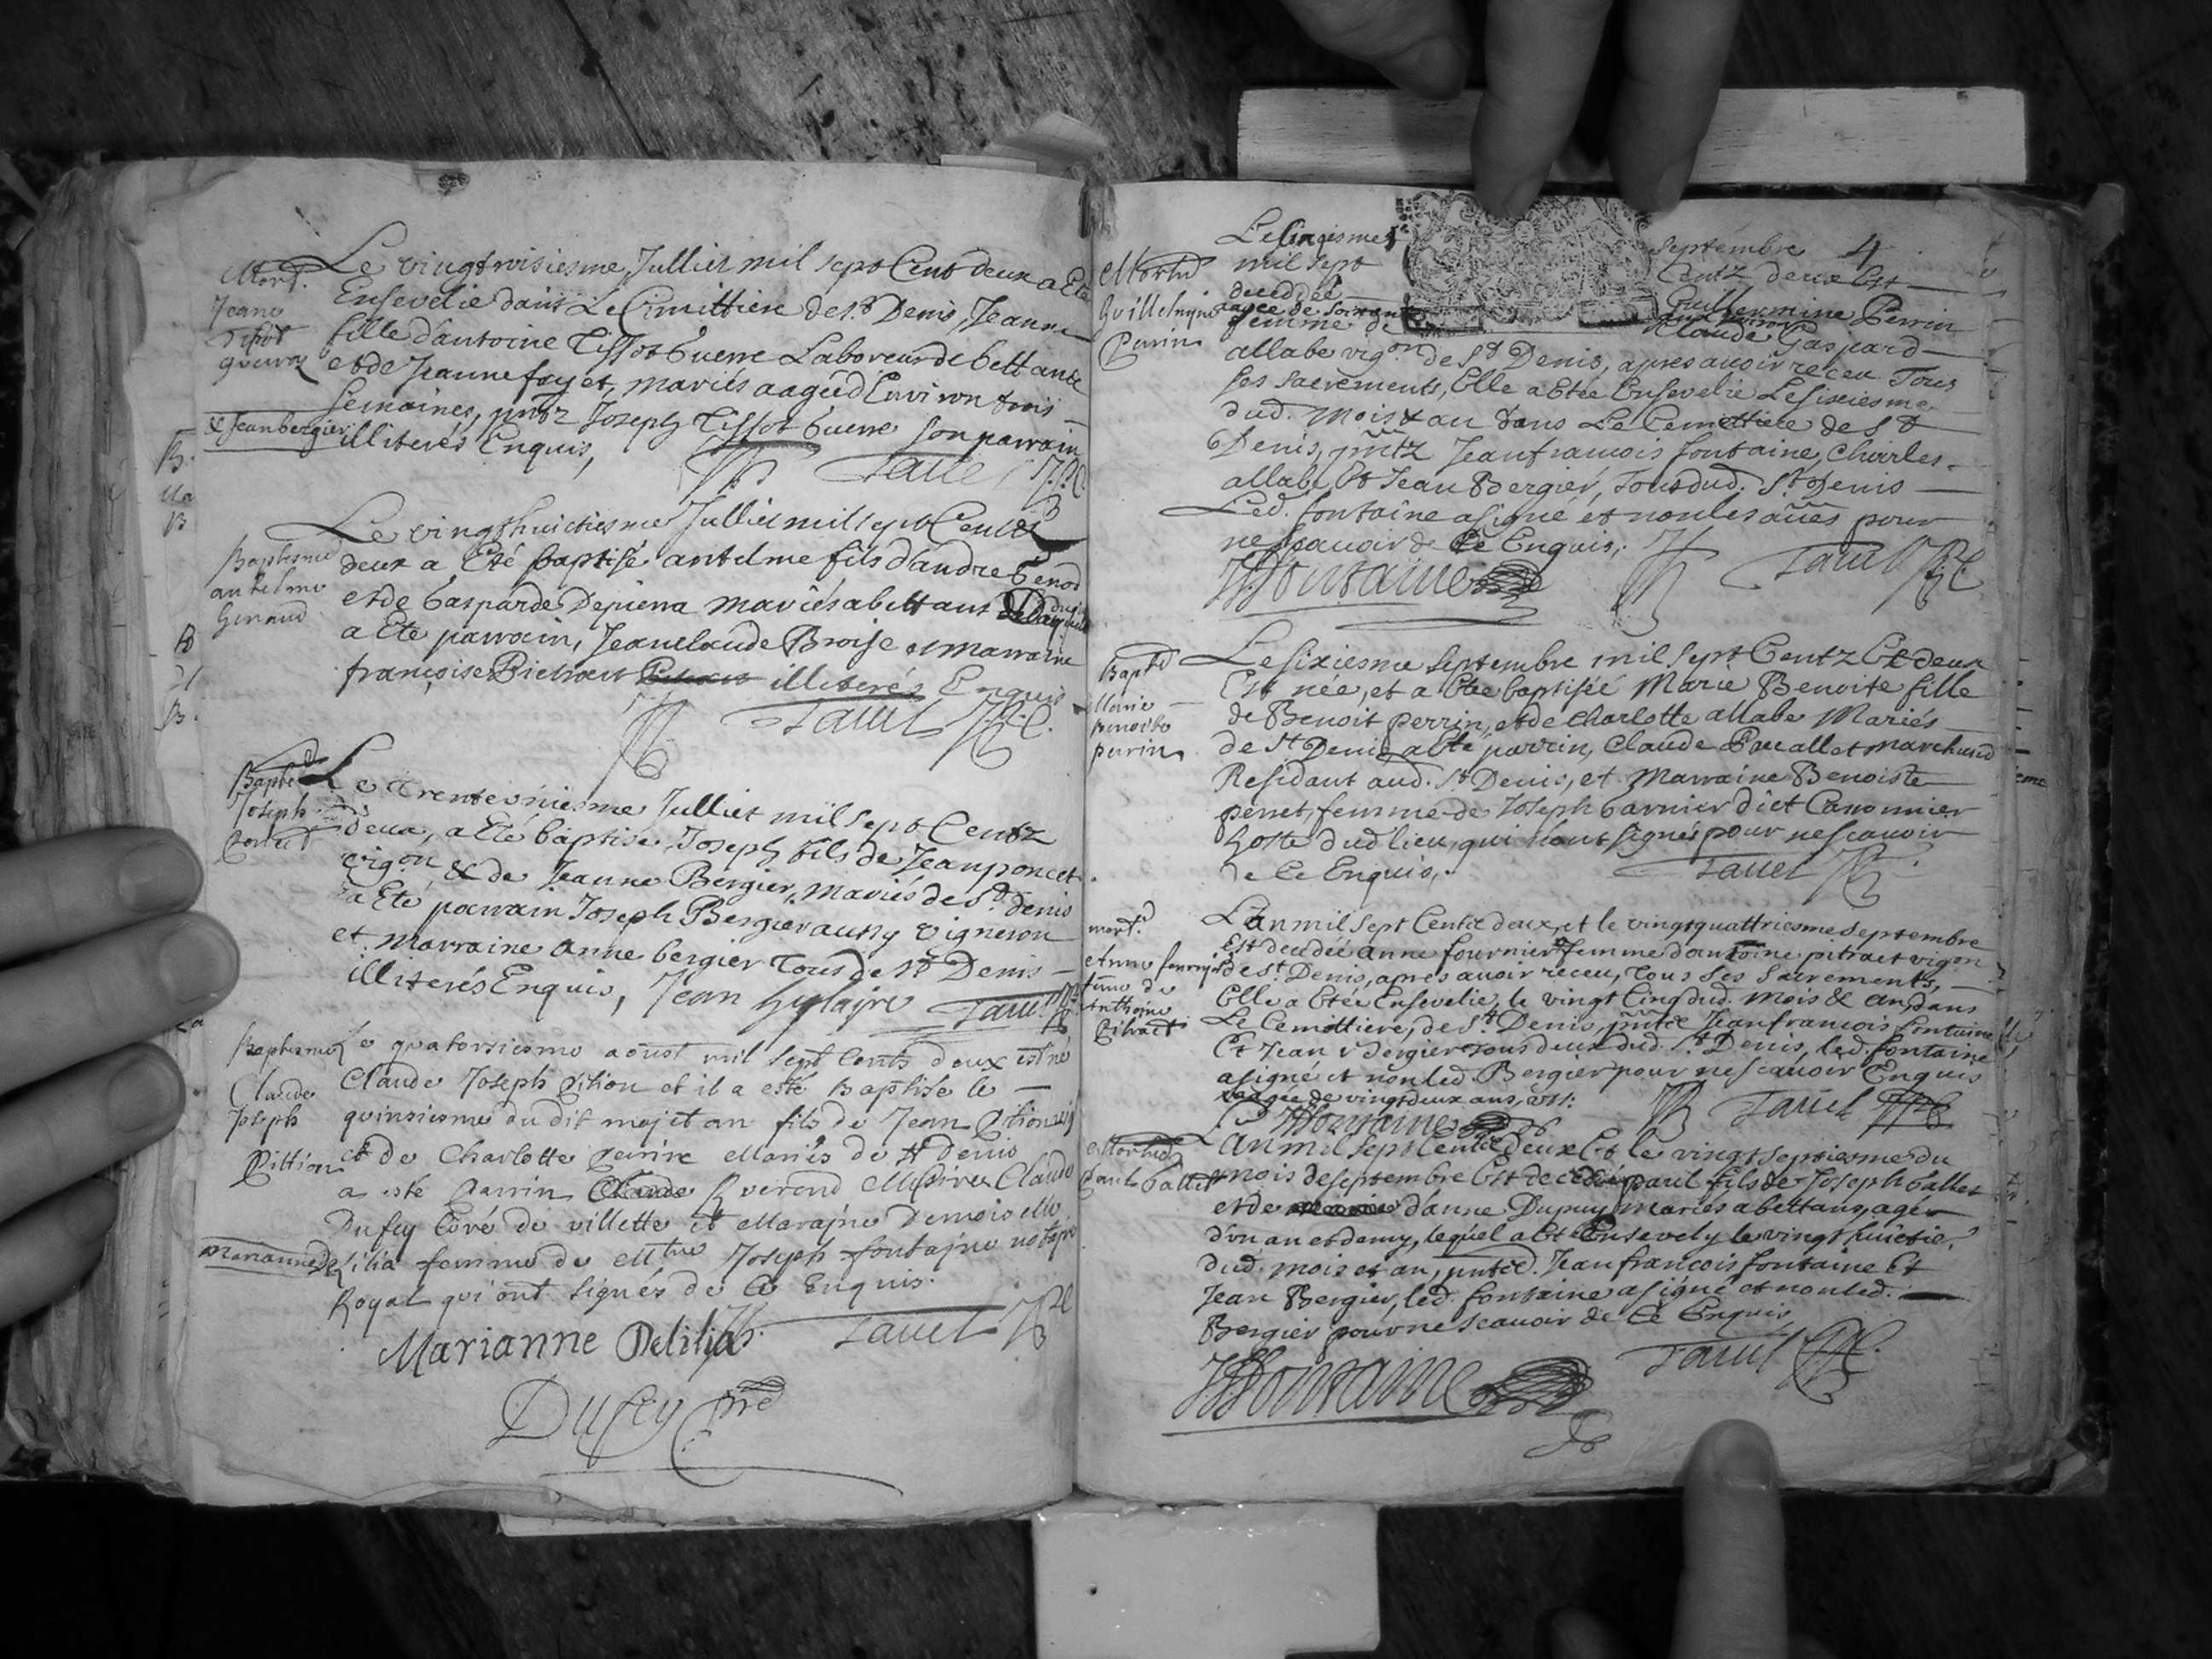 Mort.
Jeane
Tissot
guerra
Le vingtroisiesme Julliet mil sept Cent deux a Eté
Ensevelie dans Le Cimittiere de St Denis, Jeanne
fille d'antoine Tissot Guerre Laboreur de bettant
et de Jeanne foyet, mariés aagée d'Environ trois
semaines, pntz Joseph Tissot Guerre son parrain
& Jean bergier illiterés Enquis,
Tavel
Baptesme
antelme
Genaud
Le vingthuictiesme Julliet mil sept Centz
deux a Eté baptisé antelme fils d'andre Genod
et de Gasparde Depierra mariés a bettant
a Eté parrain, Jean Claude Broise et marraine
françoise Pietrait illiterés Enquis
Tavel
Bapt
Joseph
Poncet
Le trenteuniesme Julliet mil sept Centz
deux, a Eté baptisé Joseph fils de Jean poncet
vigon & de Jeanne Bergier, mariés de St denis
a Eté parrain Joseph Bergier aussy vigneron
et marraine anne bergier Tous de St Denis
illiterés Enquis, Jean hylaire Tavel
Baptesme
Claude
Joseph
Pittion
Le quatorsiesme aoust mil sept Cents deux est né
Claude Joseph Pition et il a esté Baptisé le
quinsiesme du dit mois et an fils de Jean Pition vig
et de Charlotte perrine Mariés de St Denis
a esté Parrin Reverend Messire Claude
Dufey Curé de villette et Marajne Demoiselle
Marianne de Lilia femme de Mtre Joseph fontajne notajre
Royal qui ont signés de Ce Enquis.
Marianne Delilia Tavel
Dufey
Mort
Guillelmine
Perrin
Le Cinqiesme septembre 4
mil sept Centz deux Est
decedée Guillermine Perrin
aagée de soixante
femme de Claude Gaspard
allabe vigon de St Denis, apres avoir receu Tous
ses sacrements, Elle a Etée Ensevelie Le sixiesme
dud. mois & an dans Le Cemettiere de St
Denis, pntz Jean francois fontaine, Charles
allabe Et Jean Bergier, Tous dud. St Denis
Led. fontaine a signé et non les aues pour
ne scavoir de Ce Enquis,
Fontaine Tavel
Bapt
Marie
benoite
perrin
Le sixiesme septembre mil sept Centz Et deux
Est née, et a Etée baptisée Marie Benoite fille
de Benoit perrin, et de Charlotte allabe Mariés
de St Denis a Eté parrin, Claude Pucallet marchand
Residant aud. St Denis, et Marraine Benoiste
penet, femme de Joseph Garnier dict Canonnier
hoste dud lieu, qui n'ont signés pour ne scavoir
de Ce Enquis,
Tavel
mort
Anne fournier
feme de
Anthoine
Pitract
L'an mil sept Centz deux, et le vingtquattriesme septembre
Est decedée anne fournier femme d'antoine pitract vigon
de St Denis, apres avoir receu, Tous ses sacrements,
Elle a Etée Ensevelie, le vingt Cinq dud. mois & an, dans
Le Cemittiere, de St Denis, Jean francois fontaine
Et Jean Bergier tous deux dud. St Denis, led. fontaine
a signé et non led. Bergier pour ne scavoir Enquis
aagée de vingtdeux ans,
Fontaine Tavel
Mort
Paul Gallet
L'an mil sept Centz deux Et le vingtseptiesme du
mois de septembre Est decedé paul fils de Joseph Gallet
et de d'anne Dupuy mariés a bettant, agé
d'un an et demy, lequel a Eté Ensevely le vingt huictie
dud. mois et an, Jean francois fontaine Et
Jean Bergier, led. fontaine a signé et non led.
Bergier pour ne scavoir de Ce Enquis
Fontaine Tavel